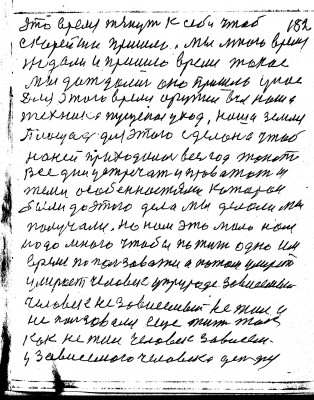 это время тянут к себе чтоб 182
скорей им пришло. Мы много время
ждали и пришло время такое
мы дождались оно пришло у нас
для этого время оружие вся наша
техника пущена в уход, наша земля
площад для этого сделана чтоб
на ней приходилось всегод жить
Все дни встречат и проважат и
теми особенностями которые
были до этого дела мы делали мы
получали. Но нам это мало нам
надо много чтобы пожит одно им
время попользоватся а потом умереть
умирает человек у природе зависимый
человек независимый не жил и
не пользовался еще жит так
как не жил человек зависем.
у зависемого человека